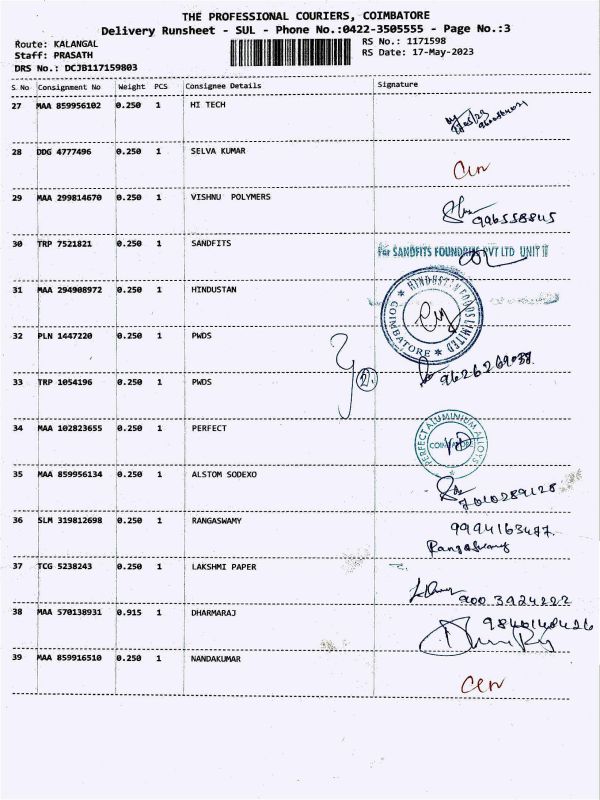 THE PROFESSIONAL COURIERS, COIMBATORE
Delivery Runsheet - SUL - Phone No.:0422-3505555 - Page No.:3
Route: KALANGAL
RS No.: 1171598
Staff: PRASATH
RS Date: 17-May-2023
DRS No.: DCJB117159803
S.No Consignment No Weight PCS Consignee Details Signature
27 MAA 859956102 0.250 1 HI TECH
28 DDG 4777496 0.250 1 SELVA KUMAR
29 MAA 299814670 0.250 1 VISHNU POLYMERS
30 TRP 7521821 0.250 1 SANDFITS For SANDFITS FOUNDRIES PVT LTD UNIT II
31 MAA 294908972 0.250 1 HINDUSTAN
HINDUSTAN FOODS LIMITED
COIMBATORE
32 PLN 1447220 0.250 1 PWDS
9626269038
33 TRP 1054196 0.250 1 PWDS
2
34 MAA 102823655 0.250 1 PERFECT
PERFECT ALUMINIUM ALLOYS
COIMBATORE
35 MAA 859956134 0.250 1 ALSTOM SODEXO
7010289128
36 SLM 319812698 0.250 1 RANGASWAMY
9994163487
Rangaswamy
37 TCG 5238243 0.250 1 LAKSHMI PAPER
900 3924222
38 MAA 570138931 0.915 1 DHARMARAJ
39 MAA 859916510 0.250 1 NANDAKUMAR